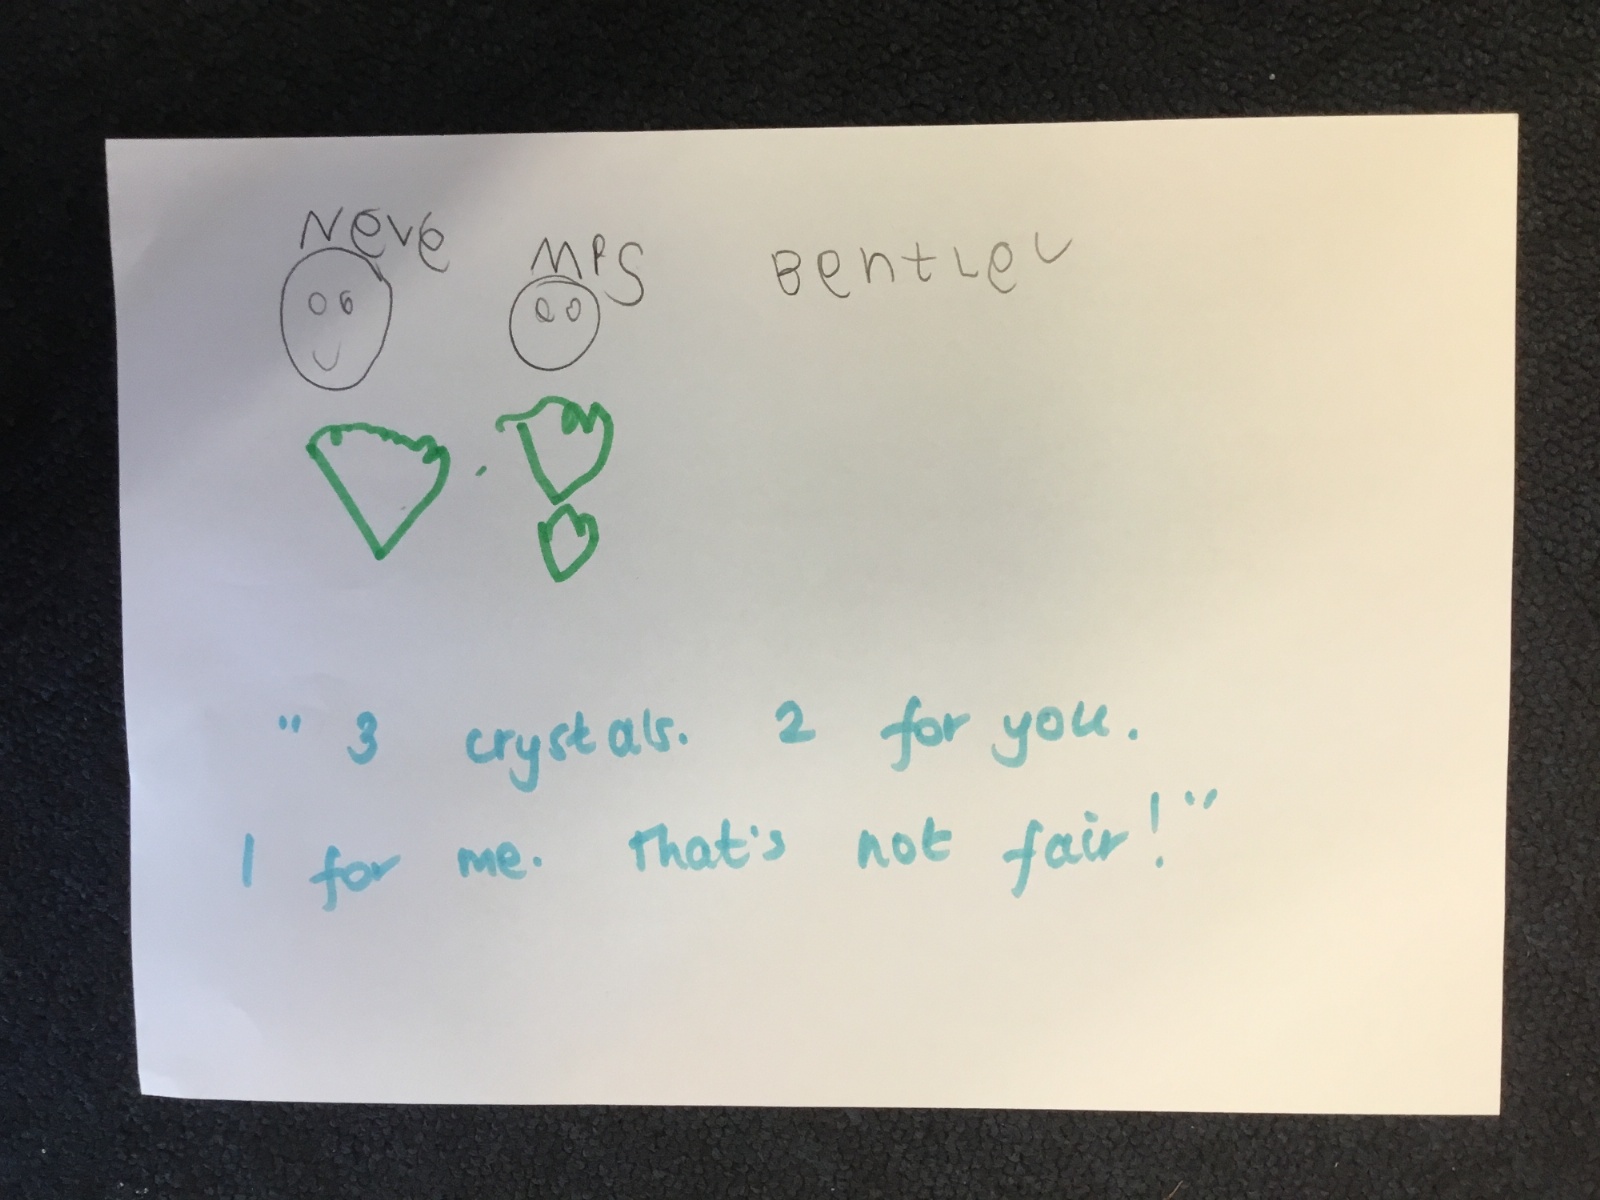 Neve Mrs Bentley
"3 crystals. 2 for you.
1 for me. That's not fair!"